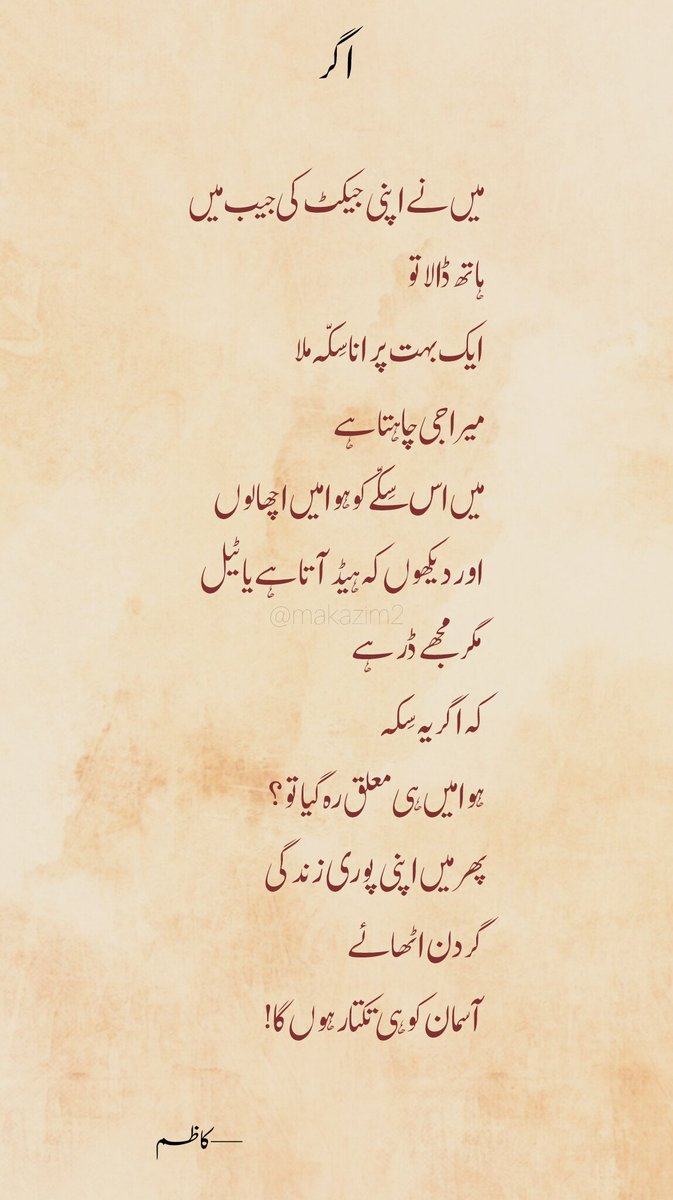 اگر
میں نے اپنی جیکٹ کی جیب میں
ہاتھ ڈالا تو
ایک بہت پرانا سِکّہ ملا
میرا جی چاہتا ہے
میں اس سِکّے کو ہوا میں اچھالوں
اور دیکھوں کہ ہیڈ آتا ہے یا ٹیل
@makazim2
مگر مجھے ڈر ہے
کہ اگر یہ سِکہ
ہوا میں ہی معلق رہ گیا تو؟
پھر میں اپنی پوری زندگی
گردن اٹھائے
آسمان کو ہی تکتا رہوں گا!
—کاظم